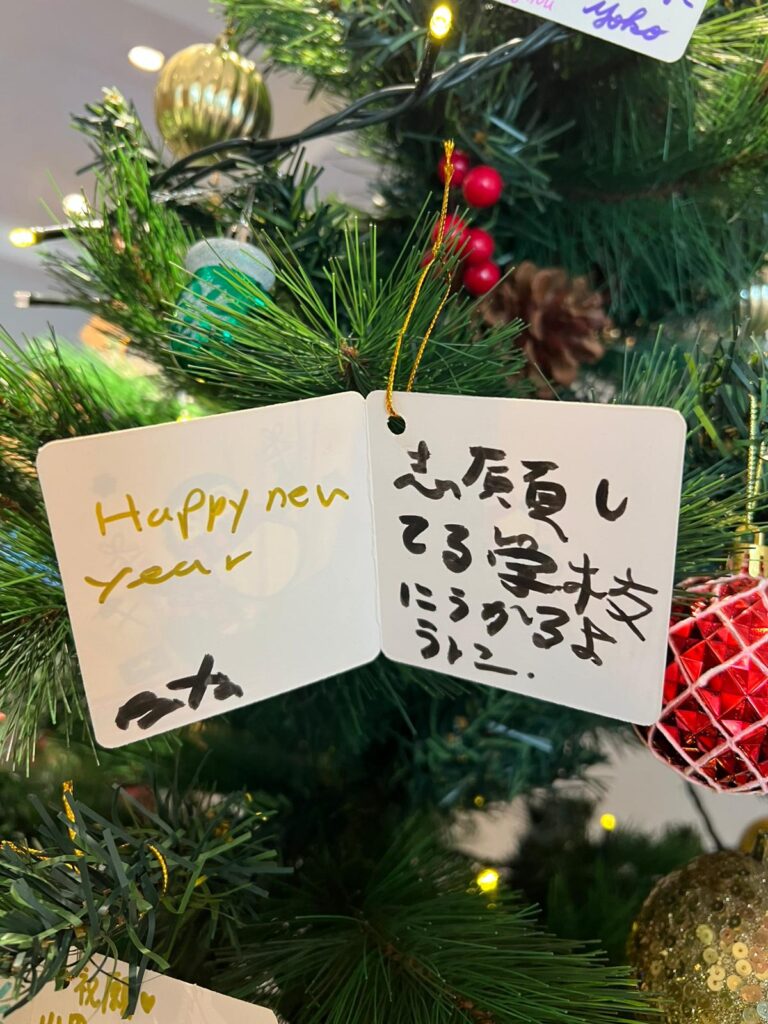 Yoko
Happy new
year
志願し
てる学校
にうかるよ
うに.
祝願♥